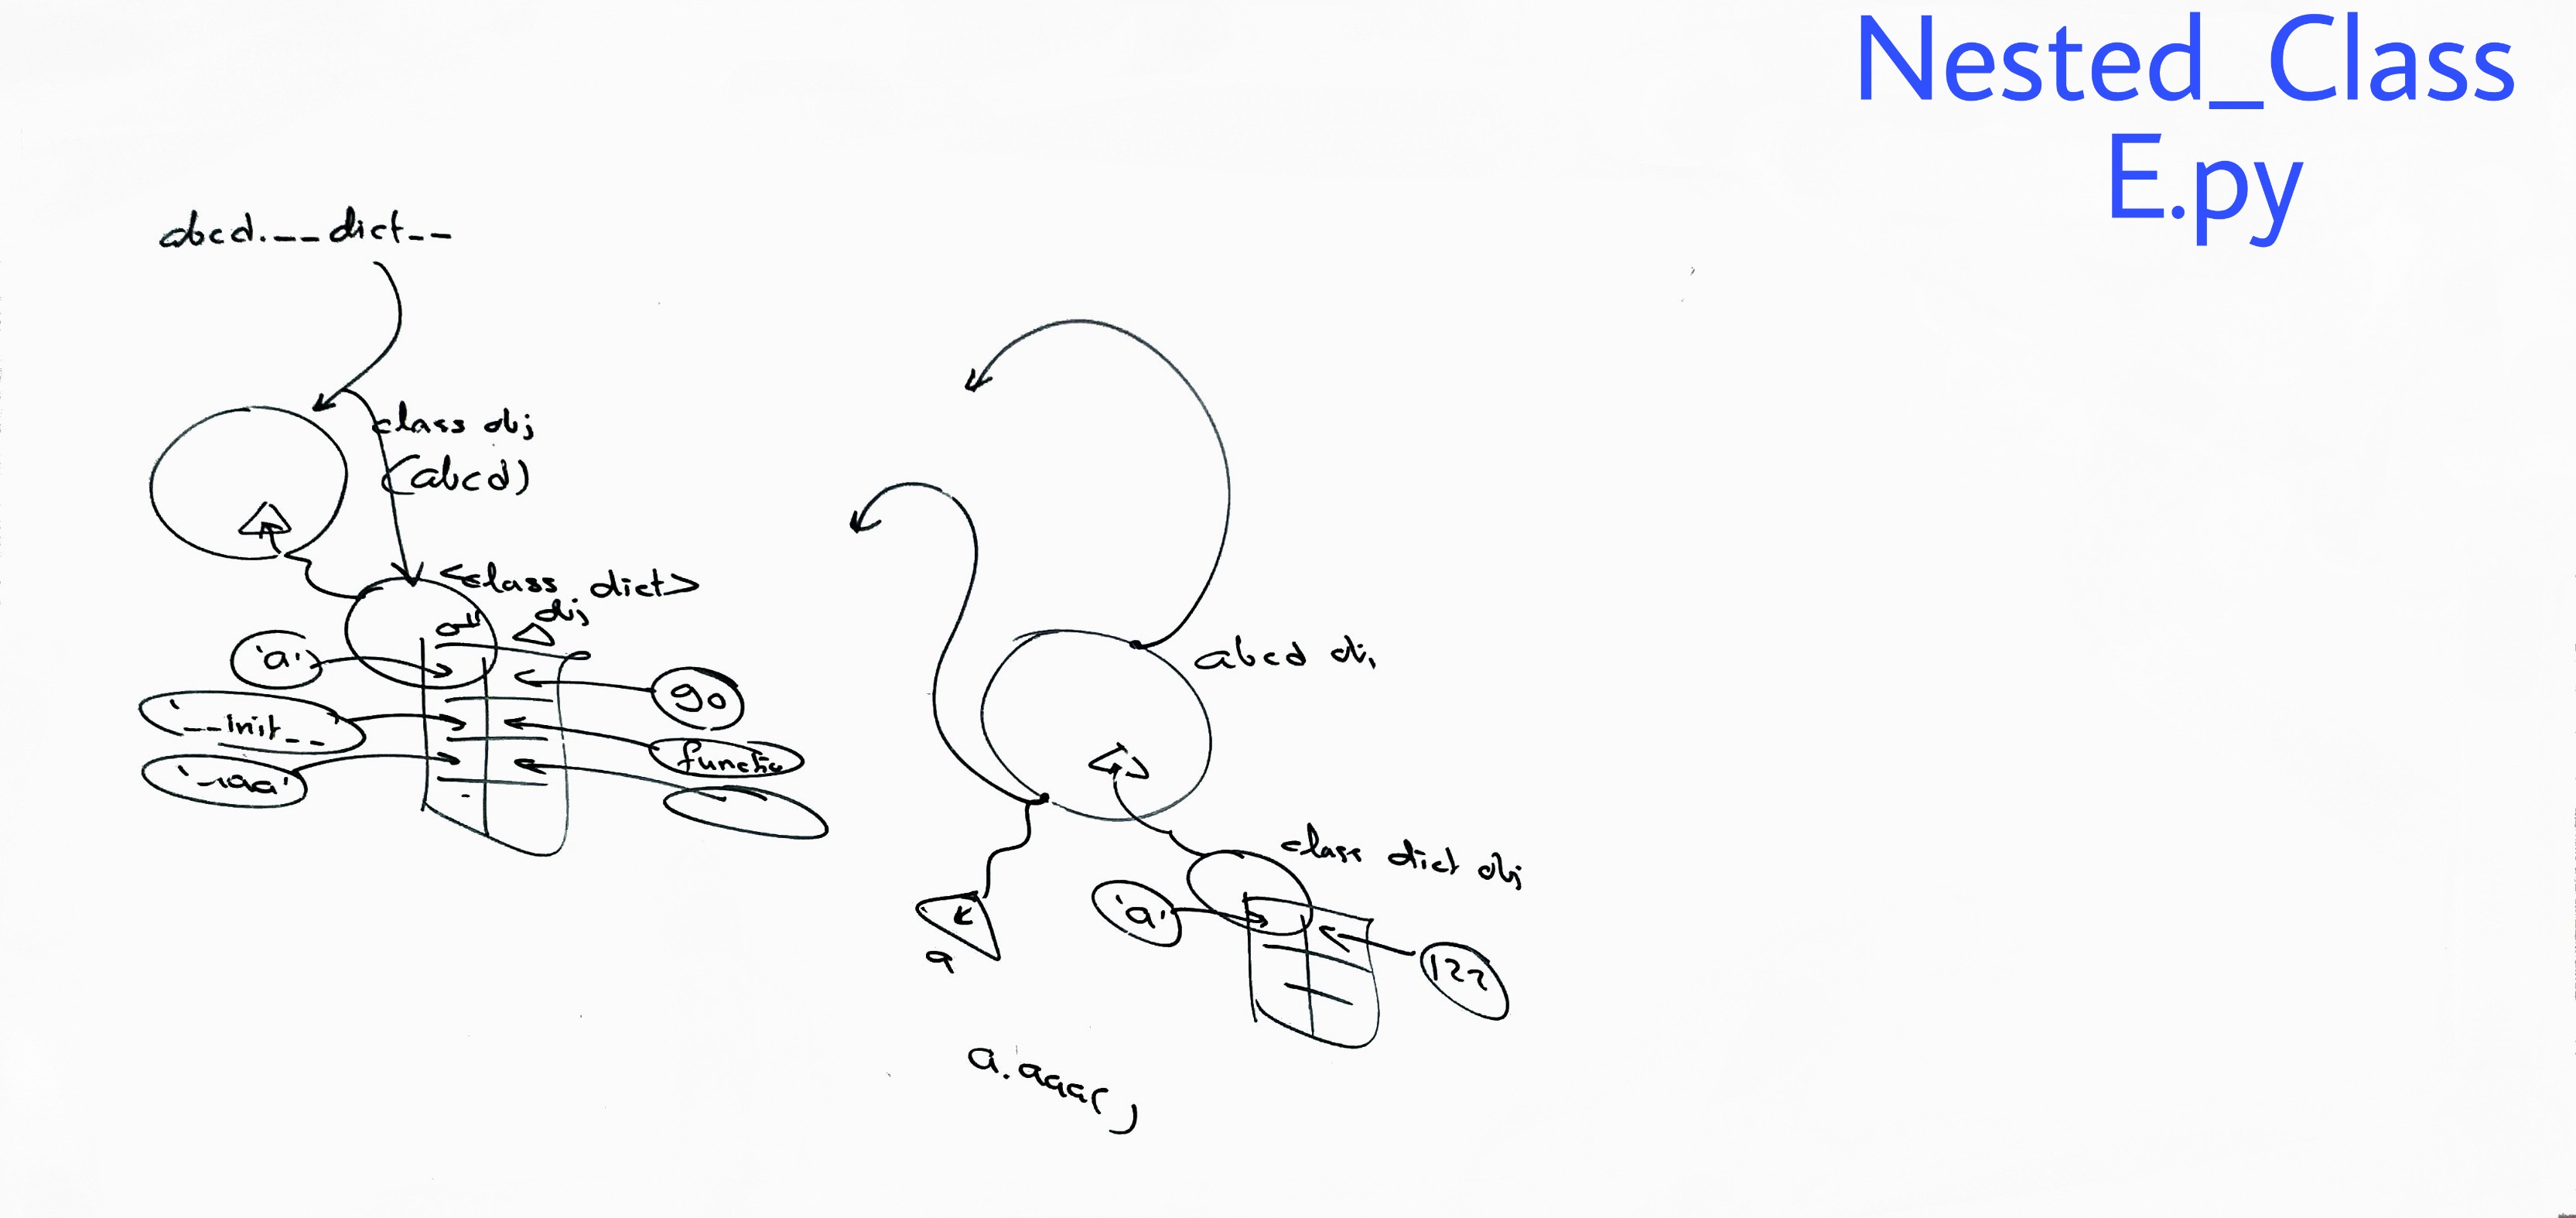 Nested_Class
E.py
abcd.__dict__
class obj
(abcd)
<class dict>
obj
'a'
90
'__init__'
functio
abcd obj
class dict obj
'a'
122
a
a.aaa()